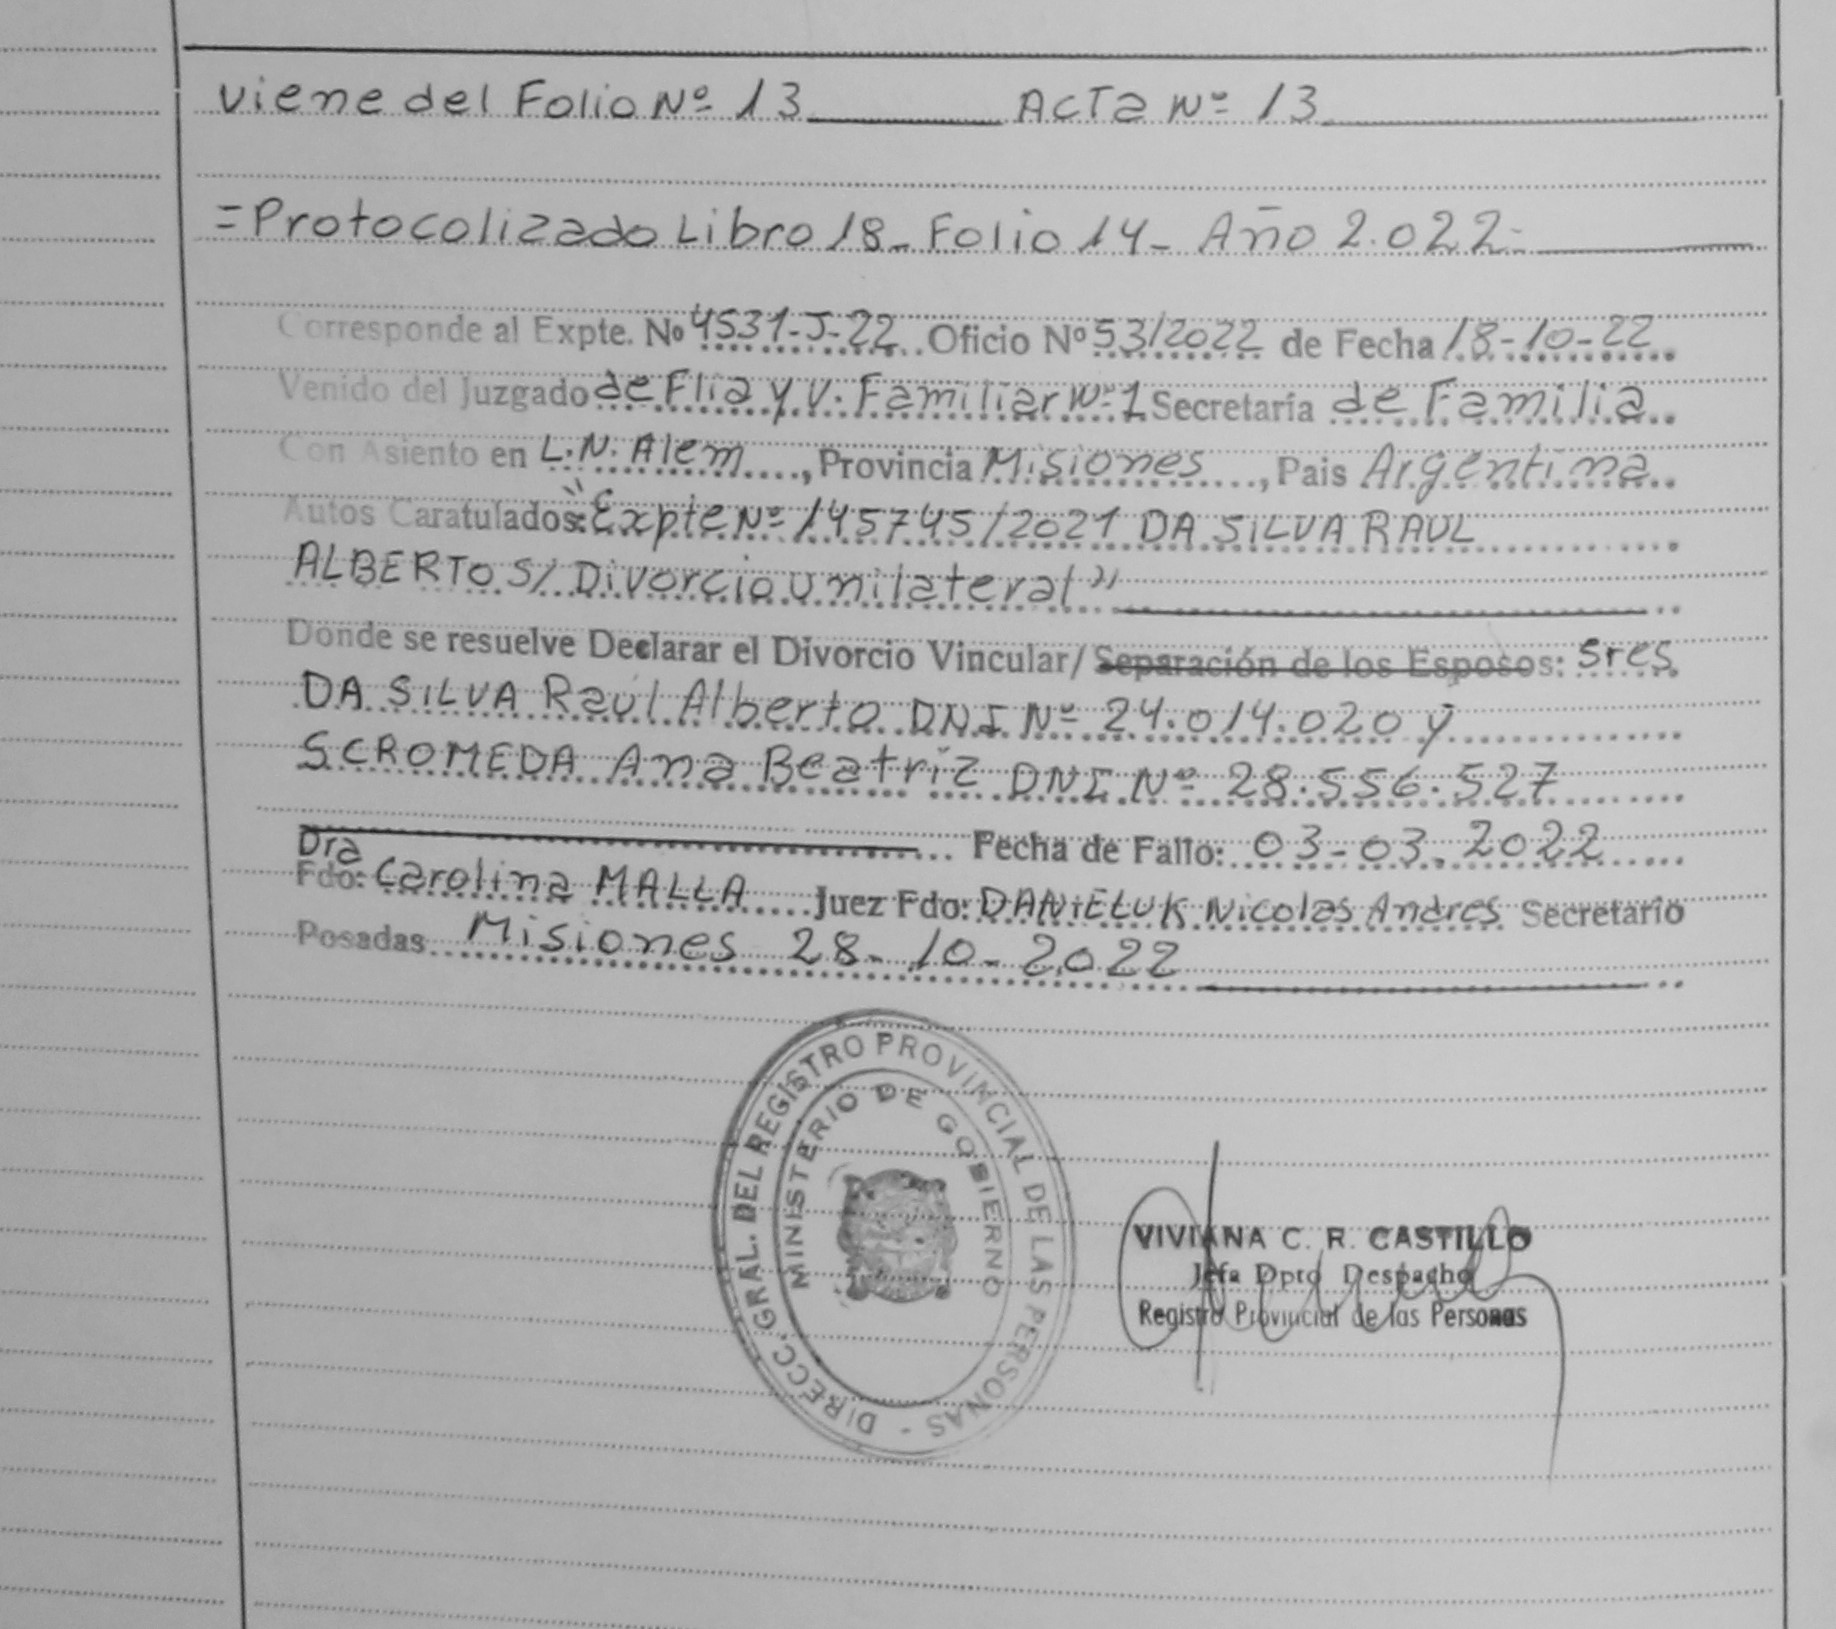 Viene del Folio Nº 13 Acta Nº 13
= Protocolizado Libro 18_ Folio 14_ Año 2.022=
Corresponde al Expte. Nº 4531-J-22 Oficio Nº 53/2022 de Fecha 18-10-22
Venido del Juzgado de Flia y V. Familiar Nº 1 Secretaría de Familia
Con Asiento en L.N. Alem, Provincia Misiones, Pais Argentina
Autos Caratulados: "Expte Nº 145745/2021 DA SILVA RAUL
ALBERTO S/ Divorcio unilateral"
Donde se resuelve Declarar el Divorcio Vincular/ Separación de los Esposos: Sres
DA SILVA Raúl Alberto DNI Nº 24.014.020 y
SCROMEDA Ana Beatriz DNI Nº 28.556.527
Fecha de Fallo: 03-03.2022
Dra
Fdo: Carolina MALLA Juez Fdo: DANIELUK Nicolas Andres Secretario
Posadas Misiones 28-10-2022
DIRECC. GRAL. DEL REGISTRO PROVINCIAL DE LAS PERSONAS -
MINISTERIO DE GOBIERNO
VIVIANA C. R. CASTILLO
Jefa Dpto Despacho
Registro Provincial de las Personas